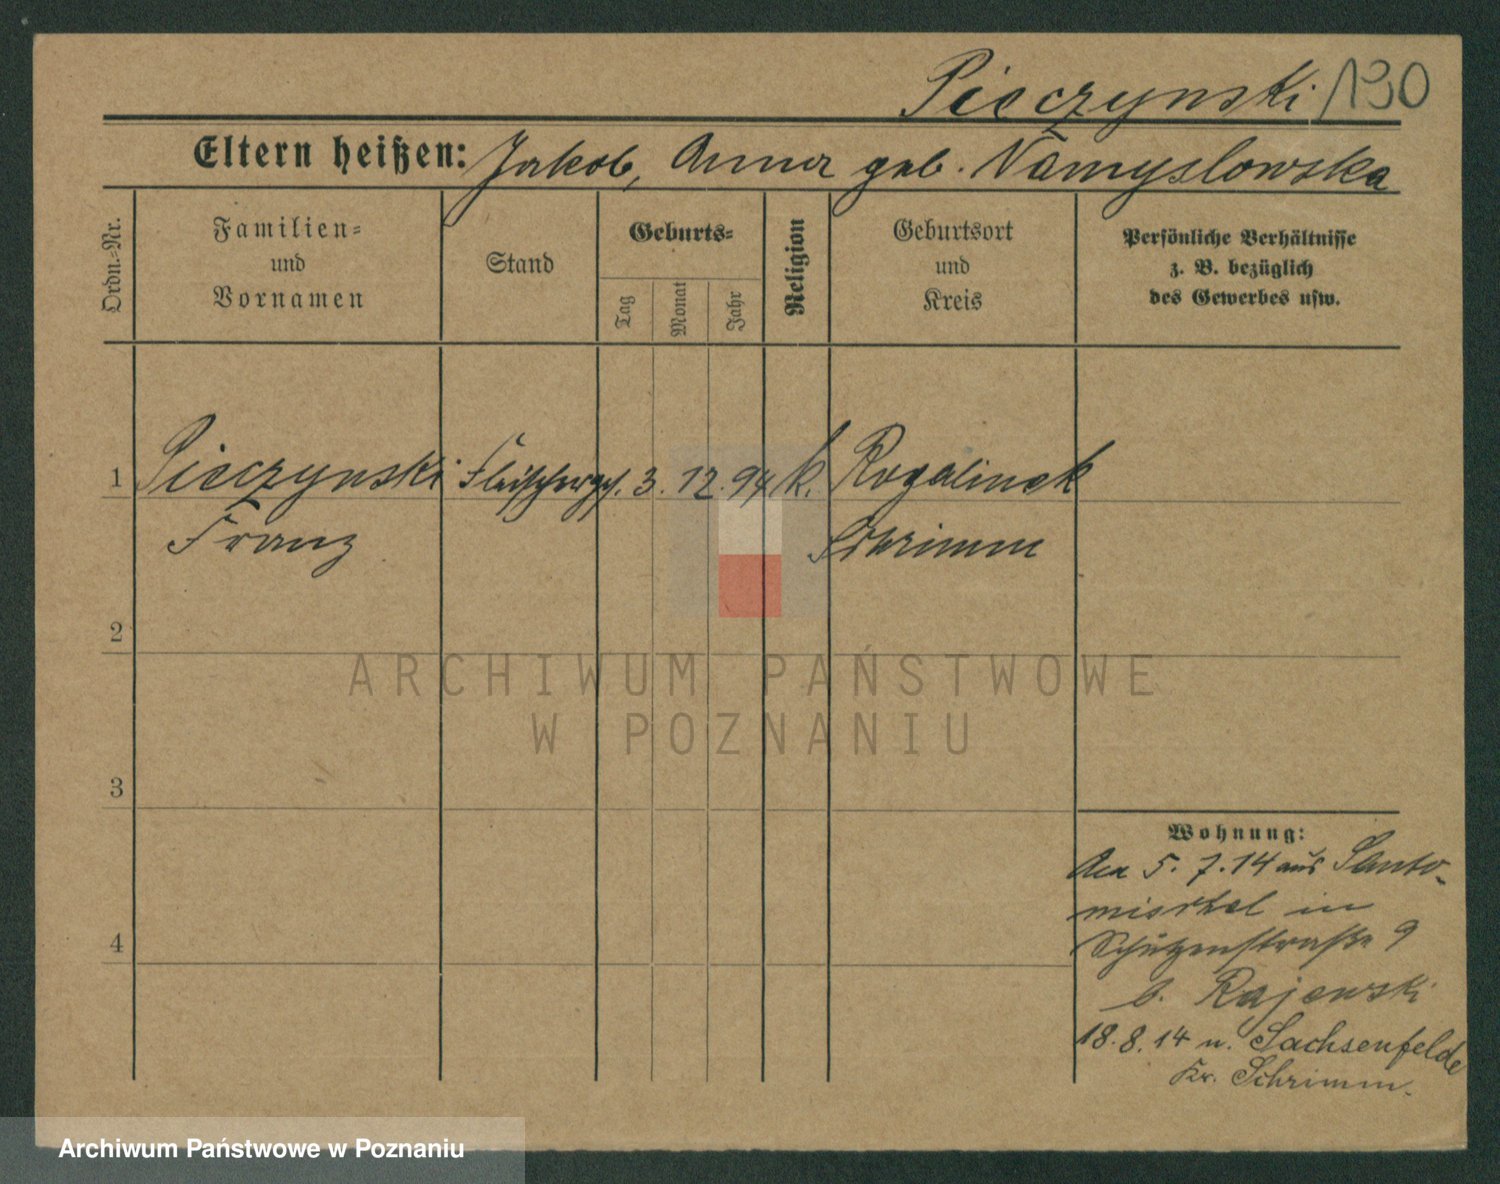 Pieczynski /190
Eltern heißen: Jakob, Anna geb. Namyslowska
Ordn.-Nr.
Familien-
und
Vornamen
Stand
Geburts-
Tag
Monat
Jahr
Religion
Geburtsort
und
Kreis
Persönliche Verhältnisse
z. B. bezüglich
des Gewerbes usw.
1 Pieczynski Fleischerges. 3. 12. 94 k. Rogalinek
Franz Schrimm
2
3
4
Wohnung:
Am 5. 7. 14 aus Santo-
mischel in
Schützenstraße 9
b. Rajewski
18. 8. 14 n. Sachsenfelde
Kr. Schrimm.
ARCHIWUM PAŃSTWOWE
W POZNANIU
Archiwum Państwowe w Poznaniu